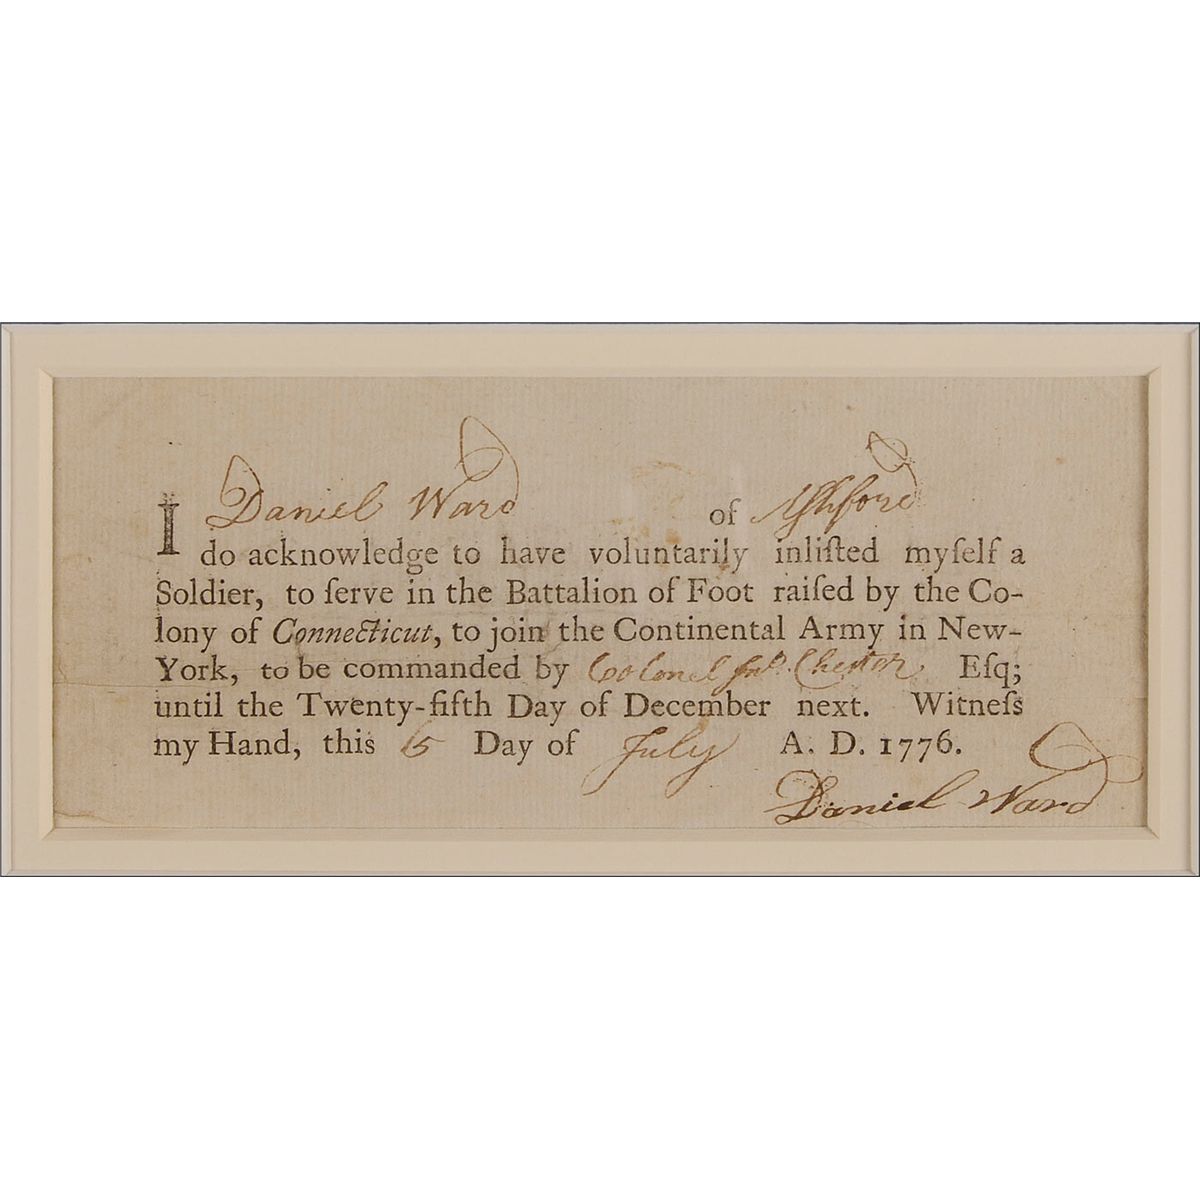 I Daniel Ward of Ashford
do acknowledge to have voluntarily inliſted myſelf a
Soldier, to ſerve in the Battalion of Foot raiſed by the Co-
lony of Connecticut, to join the Continental Army in New-
York, to be commanded by Colonel Jnº. Chester Eſq;
until the Twenty-fifth Day of December next. Witneſs
my Hand, this 15 Day of July A. D. 1776.
Daniel Ward